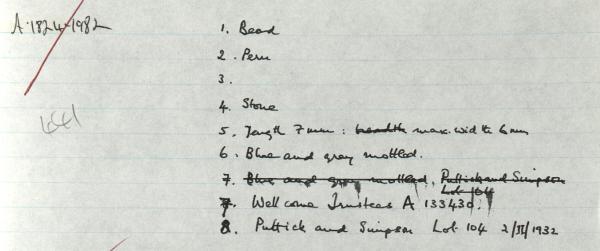 A.1824-1982
1. Bead
2. Peru
3.
641
4. Stone
5. Length 7mm : breadth max. width 6mm
6. Blue and gray mottled.
7. Blue and gray mottled, Puttick and Simpson
Lot 104
7. Wellcome Trustees A 133430.
8. Puttick and Simpson Lot 104 2/II/1932